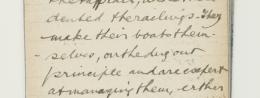 the railings. They
make their boats them-
-selves, on the dug out
principle and are expert
at managing them, either